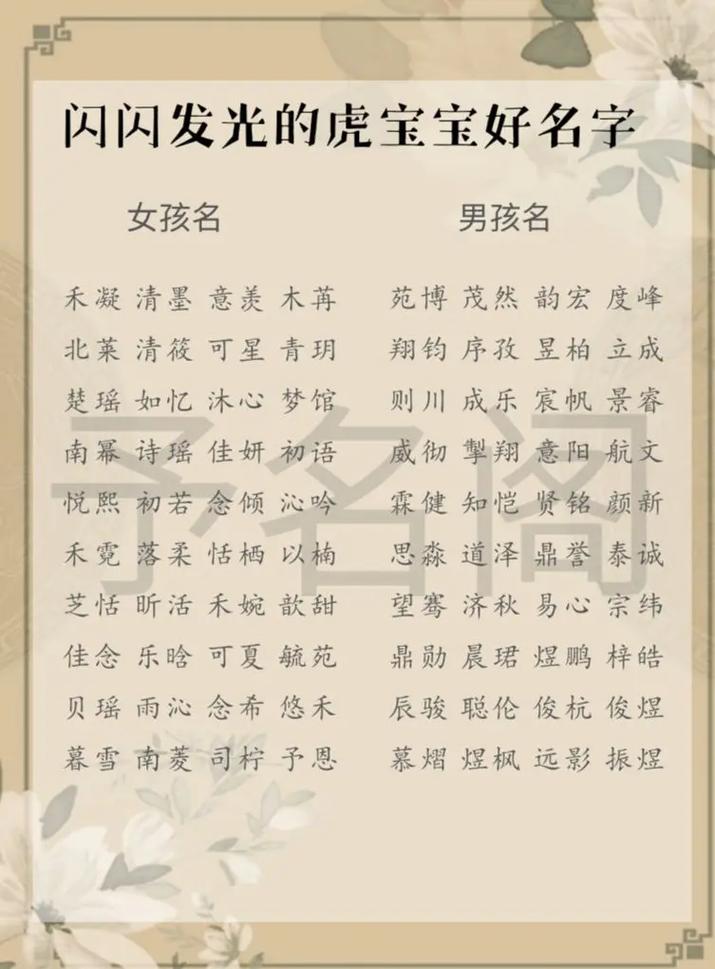 闪闪发光的虎宝宝好名字
女孩名 男孩名
禾凝 清墨 意羡 木苒 苑博 茂然 韵宏 度峰
北莱 清筱 可星 青玥 翔钧 序孜 昱柏 立成
楚瑶 如忆 沐心 梦馆 则川 成乐 宸帆 景睿
南幂 诗瑶 佳妍 初语 威彻 掣翔 意阳 航文
悦熙 初若 念倾 沁吟 霖健 知恺 贤铭 颜新
禾霓 落柔 恬栖 以楠 思淼 道泽 鼎誉 泰诚
芝恬 昕活 禾婉 歆甜 望骞 济秋 易心 宗纬
佳念 乐晗 可夏 毓苑 鼎勋 晨珺 煜鹏 梓皓
贝瑶 雨沁 念希 悠禾 辰骏 聪伦 俊杭 俊煜
暮雪 南菱 司柠 予恩 慕熠 煜枫 远影 振煜
予名阁